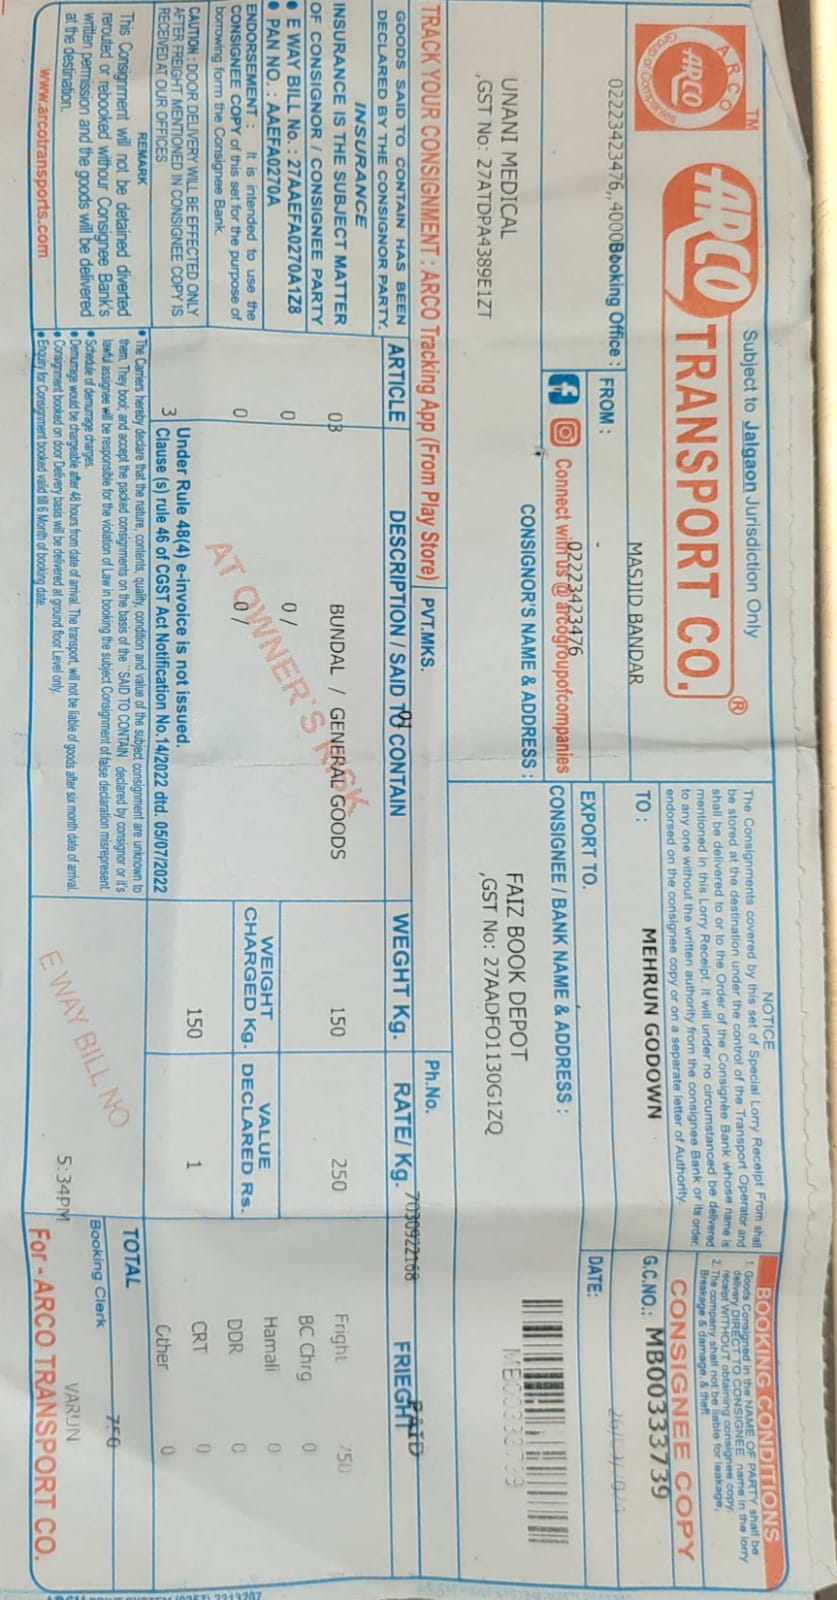 Subject to Jalgaon Jurisdiction Only
ARCO
ARCO
Group of Companies
TM
ARCO TRANSPORT CO.®
02223423476,,4000Booking Office :
FROM :
MASJID BANDAR
-
02223423476
Connect with us @ arcogroupofcompanies
NOTICE
The Consignments covered by this set of Special Lorry Receipt From shall
be stored at the destination under the control of the Transport Operator and
shall be delivered to or to the Order of the Consignee Bank whose name is
mentioned in this Lorry Receipt. It will under no circumstanced be delivered
to any one without the written authority from the consignee Bank or its order,
endorsed on the consignee copy or on a separate letter of Authority.
TO :
MEHRUN GODOWN
EXPORT TO.
BOOKING CONDITIONS
1. Goods Consigned in the NAME OF PARTY shall be
delivery DIRECT TO CONSIGNEE name in the lorry
receipt WITHOUT obtaining consignee copy.
2. The company shall not be liable for leakage,
Breakage & damage & theft
CONSIGNEE COPY
G.C.NO.: MB00333739
DATE:
CONSIGNOR'S NAME & ADDRESS :
UNANI MEDICAL
,GST No: 27ATDPA4389E1ZT
CONSIGNEE / BANK NAME & ADDRESS :
FAIZ BOOK DEPOT
,GST No: 27AADFO1130G1ZQ
TRACK YOUR CONSIGNMENT : ARCO Tracking App (From Play Store)
PVT.MKS.
Ph.No.
7030922168
PAID
GOODS SAID TO CONTAIN HAS BEEN
DECLARED BY THE CONSIGNOR PARTY.
INSURANCE
INSURANCE IS THE SUBJECT MATTER
OF CONSIGNOR / CONSIGNEE PARTY
• E WAY BILL No. : 27AAEFA0270A1Z8
• PAN NO. : AAEFA0270A
ENDORSEMENT : It is intended to use the
CONSIGNEE COPY of this set for the purpose of
borrowing form the Consignee Bank.
CAUTION : DOOR DELIVERY WILL BE EFFECTED ONLY
AFTER FREIGHT MENTIONED IN CONSIGNEE COPY IS
RECEIVED AT OUR OFFICES
REMARK
This Consignment will not be detained diverted
rerouted or rebooked withour Consignee Bank's
written permission and the goods will be delivered
at the destination.
www.arcotransports.com
ARTICLE
DESCRIPTION / SAID TO CONTAIN
01
WEGHT Kg.
RATE/ Kg.
FRIEGHT
03
BUNDAL / GENERAL GOODS
150
250
Fright 750
BC Chrg 0
0
0 /
Hamali 0
WEIGHT
CHARGED Kg.
VALUE
DECLARED Rs.
0
0 /
DDR 0
AT OWNER'S RISK
150
1
CRT 0
3
Other 0
Under Rule 48(4) e-invoice is not issued.
Clause (s) rule 46 of CGST Act Notification No.14/2022 dtd. 05/07/2022
• The Carriers hereby declare that the nature, contents, quality, condition and value of the subject consignment are unknown to
them. They book and accept the packed consignments on the basis of the "SAID TO CONTAIN" declared by consignor or it's
lawful assignee will be responsible for the violation of Law in booking the subject Consignment of false declaration misrepresent.
• Schedule of demurrage charges.
• Demurrage would be chargeable after 48 hours from date of arrival. The transport, will not be liable of goods after six month date of arrival.
• Consignment booked on door Delivery basis will be delivered at ground floor Level only.
• Enquiry for Consignment booked valid till 6 Month of booking date.
E WAY BILL NO
TOTAL
750
5:34PM
Booking Clerk
VARUN
For - ARCO TRANSPORT CO.